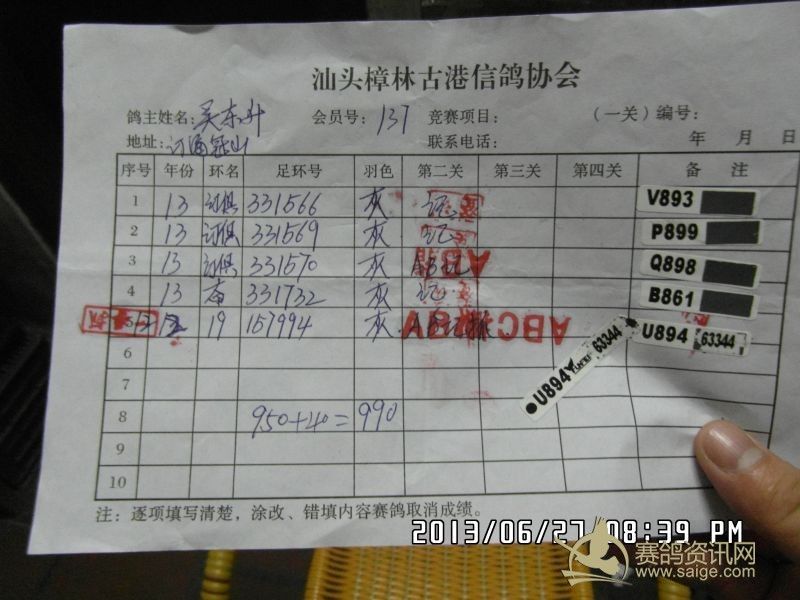 汕头樟林古港信鸽协会
鸽主姓名: 吴东升 会员号: 137 竞赛项目: (一关) 编号:
地址: 冠山 联系电话: 年 月 日
序号 年份 环名 足环号 羽色 第二关 第三关 第四关 备 注
1 13 331566 灰 V893
2 13 331569 灰 P899
3 13 331570 灰 AB Q898
4 13 331732 灰 B861
5 19 157994 灰 ABC U894 63344
U894 63344
6
7
8 950+40=990
9
10
注: 逐项填写清楚，涂改、错填内容赛鸽取消成绩。
2013/06/27 08:39 PM
赛鸽资讯网
www.saige.com